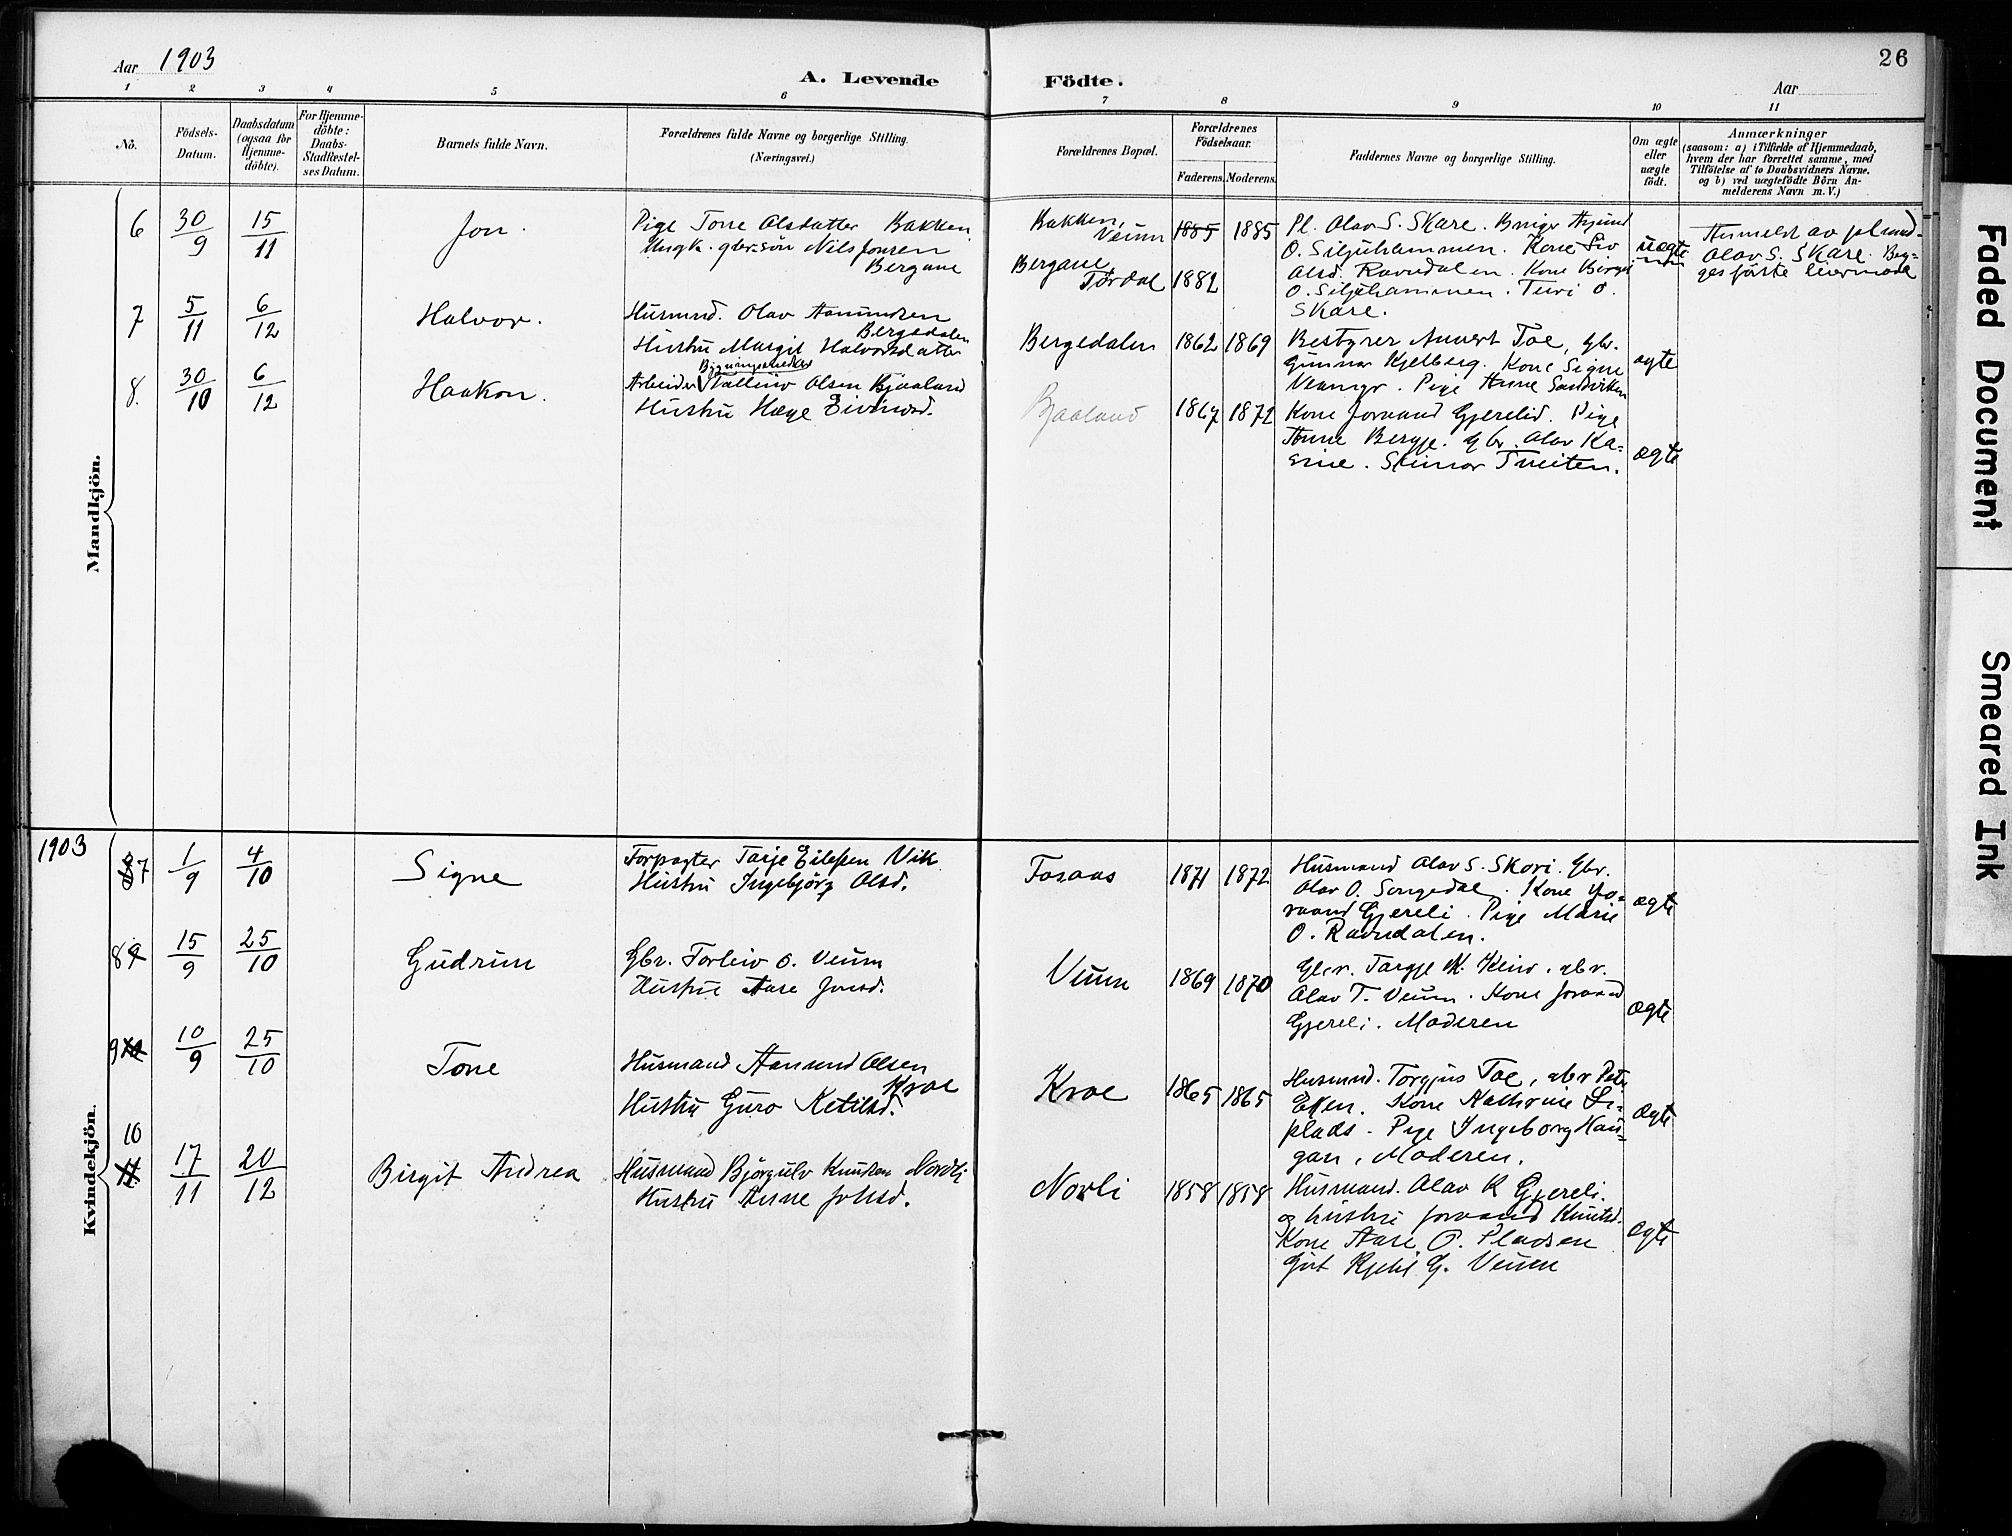 Aar 1903
A. Levende Födte.
Aar
26
1 2 3 4 5 6 7 8 9 10 11
No.
Födsels-
Datum.
Daabsdatum
(ogsaa för
Hjemme-
döbte).
For Hjemme-
döbte:
Daabs-
Stadfæstel-
ses Datum.
Barnets fulde Navn.
Forældrenes fulde Navne og borgerlige Stilling.
(Næringsvei.)
Forældrenes Bopæl.
Forældrenes
Födselsaar.
Faderens. Moderens.
Faddernes Navne og borgerlige Stilling.
Om ægte
eller
uægte
födt.
Anmærkninger
(saasom: a) i Tilfælde af Hjemmedaab,
hvem der har forrettet samme, med
Tilföielse af to Daabsvidners Navne,
og b) ved uægtefödte Börn An-
melderens Navn m. V.)
Mandkjön.
6 30/9 15/11 Jon.
Pige Tone Olsdatter Bakken
Ungk. gbr.sön Nils Jonsen
Bergane
Bakken,
Veum
Bergane
Tördal
1885 1885
1882
Pl. Olav S. Skare.
O. Siljuhammen. Kone
Olsd. Ravndalen. Kone Birgit
O. Siljuhammen. Turi O.
Skare.
uægte
Anmeldt av
Olav S. Skare. Beg-
ges förste leiermaal
7 5/11 6/12 Halvor.
Husmnd. Olav Aanundsen
Bergedalen
Hustru Margit Halvorsdatter
Bergedalen 1862 1869
Bestyrer Anvert Toe, Gbr.
Gunnar Kjelberg. Kone Signe
Pige Anne Sandviken
ægte
8. 30/10 6/12 Haakon.
Arbeider Olsen Bjaaland
Hustru Hæge Eivindsd.
Bjaaland 1867 1872
Kone Joraand Gjerelid. Pige
Anne Bergje. Gbr. Olav Ka-
sine. Steinar Tveiten.
ægte
1903
Kvindekjön.
7 1/9 4/10 Signe
Forpagter Tarje Eilefsen Vik
Hustru Ingebjörg Olsd.
Fosaas 1871 1872
Husmand Olav S. Skori. Gbr.
Olav O. Songedal. Kone Jo-
raand Gjereli. Pige Marie
O. Ravndalen.
ægte
8 9 15/9 25/10 Gudrun
Gbr. Torleiv O. Veum
Hustru Aase Jonsd.
Veum 1869 1870
Gbr. Targje K. Kleiv. Gbr.
Olav T. Veum. Kone Joraand
Gjereli. Moderen
ægte
9 10 10/9 25/10 Tone
Husmand Aanund Olsen
Kroe
Hustru Guro Ketilsd.
Kroe 1865 1865
Husmnd. Torgjus Toe, Gbr
Kone Kathrine
plads. Pige Ingeborg Hau-
gan, Moderen.
ægte
10
11 17/11 20/12 Birgit Andrea
Husmand Björgulv Knutsen Nordli
Hustru Anne Johsd.
Norli 1858 1858
Husmand. Olav K Gjereli.
og hustru Joraand Knutsd.
Kone Aase O. Pladsen
Gut Kjetil G. Veum
ægte
Faded Document
Smeared Ink